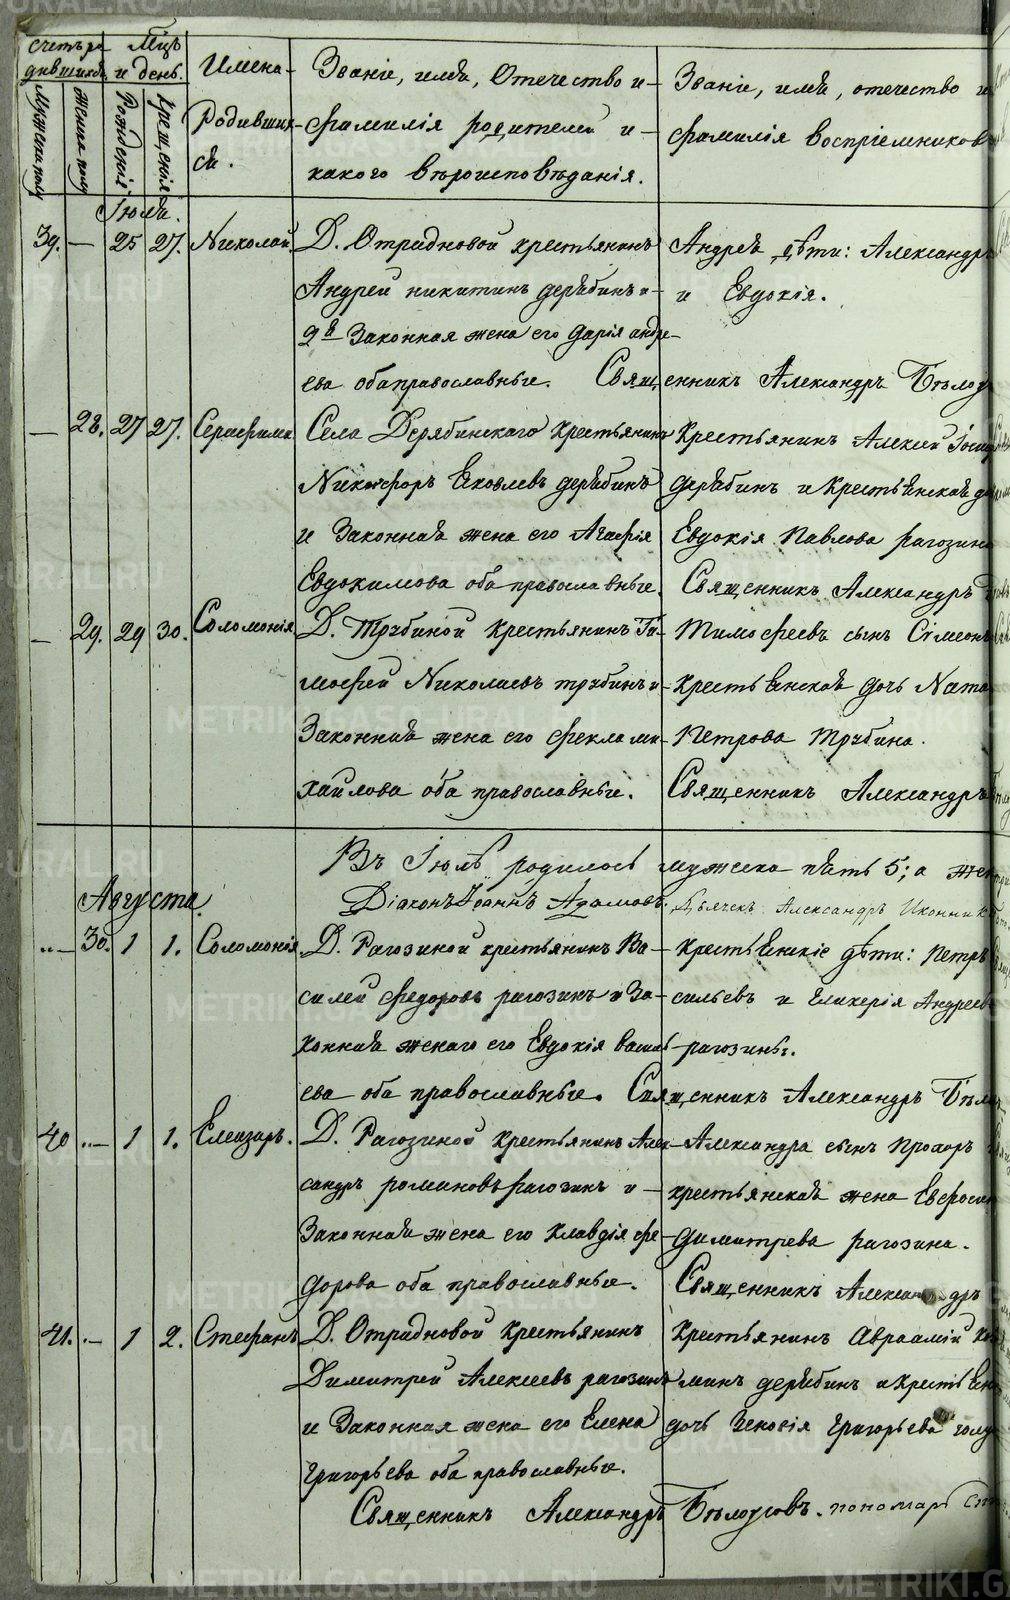 Счетъ ро
дившихся
Мѣцъ
и день.
Мужеска полу
Женска полу
Рожденія
крещенія
Имена
Родивших-
ся.
Званіе, имя, Отечество и
фамилія родителей и
какого вѣроисповѣданія.
Званіе, имя, отечество и
фамилія воспріемниковъ
Іюля.
39. — 25 27. Николай
Д. Отрадновой крестьянинъ
Андрей никитинъ дерябинъ и
2я Законная жена его Дарія андре-
ева оба православные.
Андрея дѣти: Александръ
и Евдокія.
Священникъ Александръ
— 28. 27 27. Серафима
Села Дерябинскаго крестьянинъ
Никифоръ Яковлевъ дерябинъ
и Законная жена его Агафія
Евдокимова оба православные.
Крестьянинъ Алексѣй
дерябинъ и крестьянская
Евдокія Павлова рагозина
Священникъ Александръ
— 29. 29 30. Соломонія
Д. Трубиной крестьянинъ Ти-
мофей Николаевъ трубинъ и
Законная жена его Фекла ми-
хайлова оба православные.
Тимофеевъ сынъ Сѵмеонъ
крестьянская дочь
Петрова Трубина.
Священникъ Александръ
Въ Іюлѣ родилось мужеска пять 5; а
Діаконъ Іоаннъ Адамовъ. Дьячекъ Александръ
Августа.
— 30. 1 1. Соломонія
Д. Рагозиной крестьянинъ Ва-
силей федоровъ рагозинъ и За-
конная женаго его Евдокія василь-
ева оба православные.
крестьянскіе дѣти: Петръ
сильевъ и Гликерія Андреева
рагозины.
Священникъ Александръ
40 — 1 1. Елеазаръ.
Д. Рагозиной крестьянинъ Алек-
сандръ романовъ рагозинъ и
Законная жена его Клавдія фе-
дорова оба православные.
Александра сынъ Прохоръ
крестьянская жена
Димитрева рагозина.
Священникъ Александръ
41. — 1 2. Стефанъ
Д. Отрадновой крестьянинъ
Димитрей Алексеевъ рагозинъ
и Законная жена его Елена
Григорьева оба православные.
крестьянинъ Авраамій
минъ дерябинъ и
дочь Григорьева
Священникъ Александръ Бѣлоусовъ. пономарь
METRIKI.GASO-URAL.RU